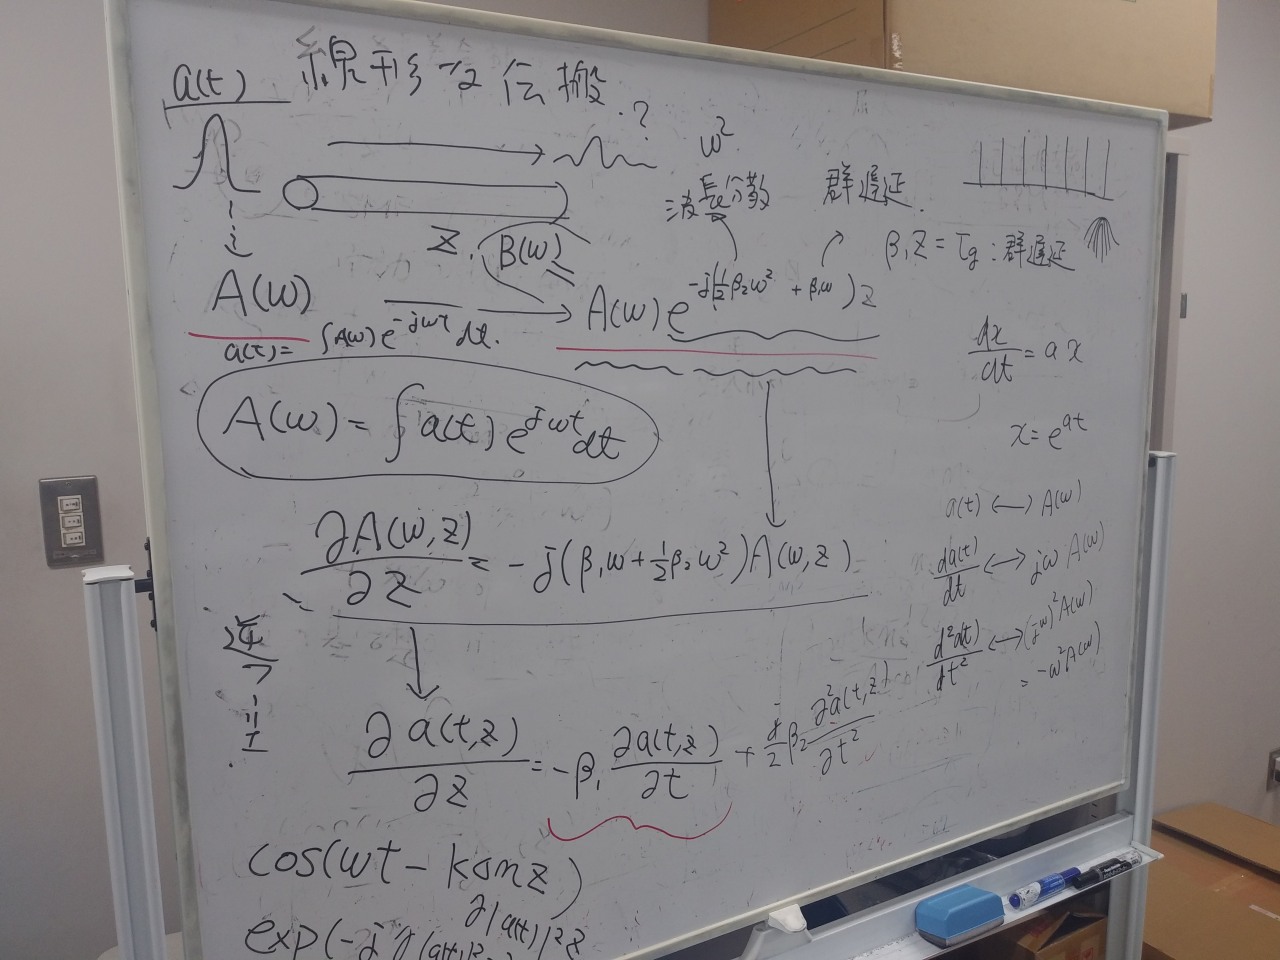 a(t) 線形な伝搬.?
ω²
波長分散 群遅延.
z. β(ω)
β₁z = τg : 群遅延
A(ω) → A(ω)e^{-j(½β₂ω² + β₁ω)z}
a(t) = ∫A(ω)e^{-jωt}dt.
A(ω) = ∫a(t)e^{jωt}dt
dx/dt = ax
x = e^{at}
a(t) ↔ A(ω)
da(t)/dt ↔ jωA(ω)
d²a(t)/dt² ↔ (jω)²A(ω)
= -ω²A(ω)
∂A(ω,z)/∂z = -j(β₁ω + ½β₂ω²)A(ω,z)
∂a(t,z)/∂z = -β₁ ∂a(t,z)/∂t + j/2 β₂ ∂²a(t,z)/∂t²
cos(ωt - k₀nz)